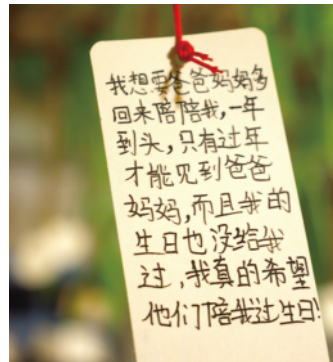 我想要爸爸妈妈多
回来陪陪我,一年
到头,只有过年
才能见到爸爸
妈妈,而且我的
生日也没给我
过,我真的希望
他们陪我过生日!